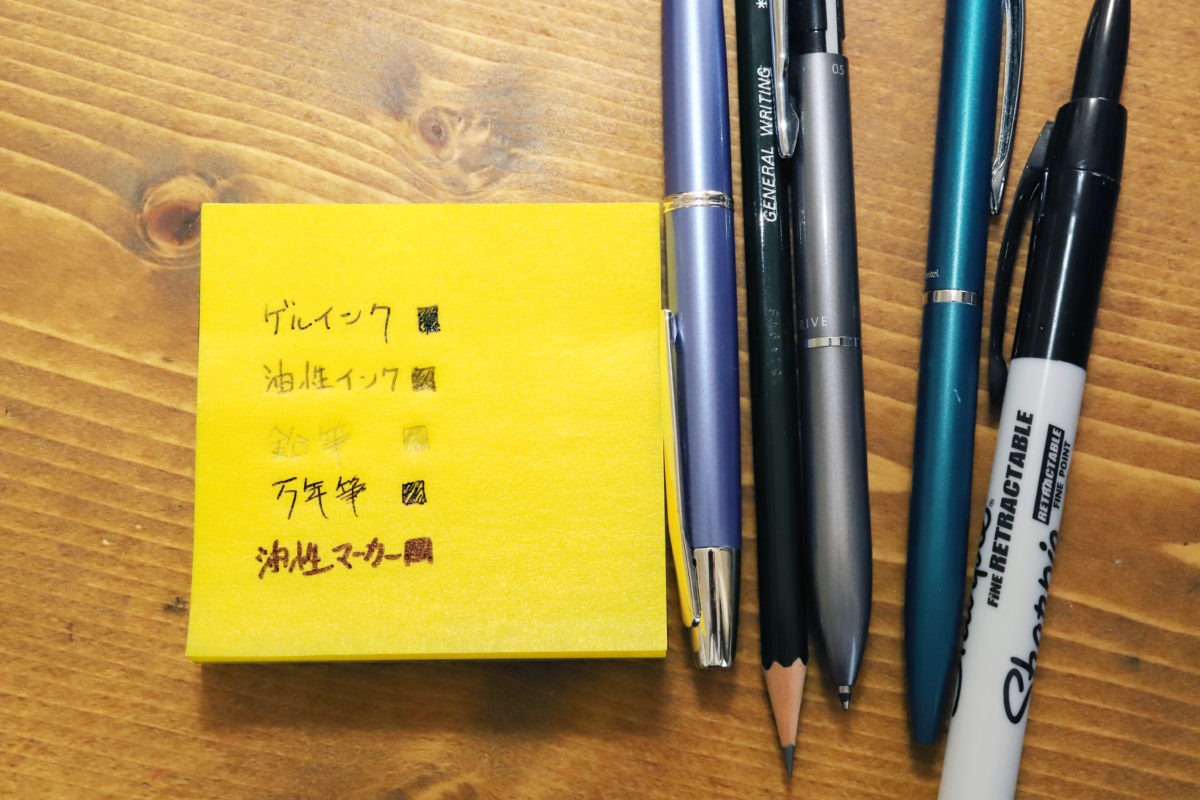 ゲルインク
油性インク
鉛筆
万年筆
油性マーカー
GENERAL WRITING
0.5
RIVE
FINE RETRACTABLE
RETRACTABLE
FINE POINT
Sharpie